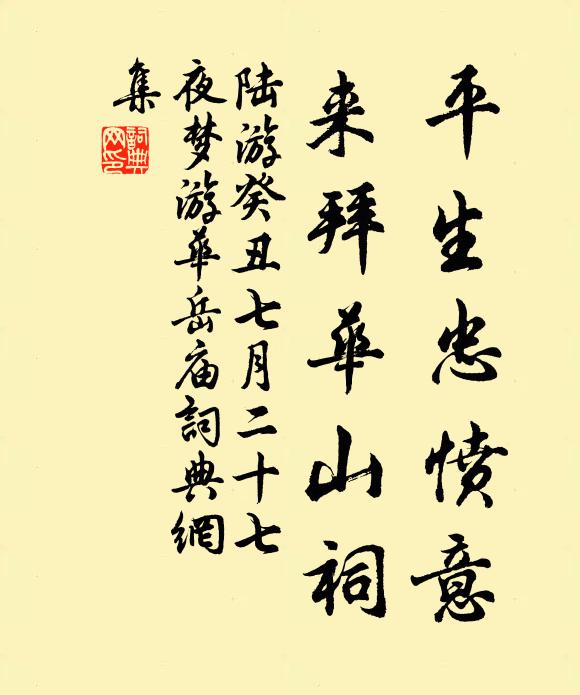 平生忠愤意
来拜华山祠
陆游癸丑七月二十七
夜梦游华岳庙詞典網
集
詞典
网印